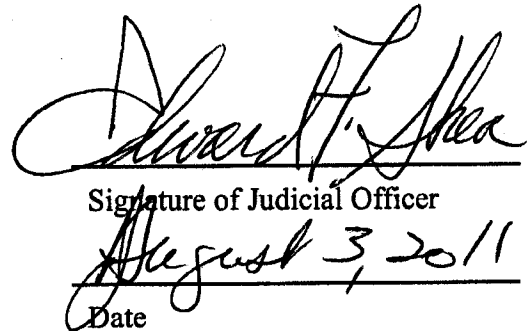 Edward F. Shea
Signature of Judicial Officer
August 3, 2011
Date